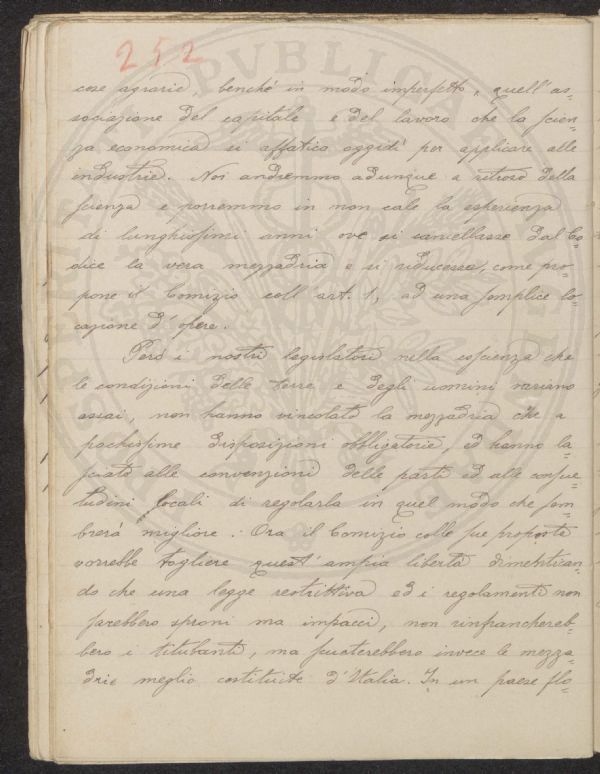 252
cose agrarie, benchè in modo imperfetto, quell'as=
sociazione del capitale e del lavoro che la scien=
za economica si affatica oggidì per applicare alle
industrie. Noi andremmo adunque a ritroso della
scienza e porremmo in non cale la esperienza
di lunghissimi anni ove si cancellasse dal Co=
dice la vera mezzadria e si riducesse, come pro=
pone il Comizio coll'art. 1, ad una semplice lo=
cazione d'opere.
Però i nostri legislatori nella coscienza che
le condizioni delle terre e degli uomini variano
assai, non hanno vincolato la mezzadria che a
pochissime disposizioni obbligatorie, ed hanno la=
sciato alle convenzioni delle parti ed alle consue=
tudini locali di regolarla in quel modo che sem=
brerà migliore. Ora il Comizio colle sue proposte
vorrebbe togliere quest'ampia libertà dimentican=
do che una legge restrittiva ed i regolamenti non
sarebbero sproni ma impacci, non rinfrancherеb=
bero i titubanti, ma guasterebbero invece le mezza=
drie meglio costituite d'Italia. In un paese flo=